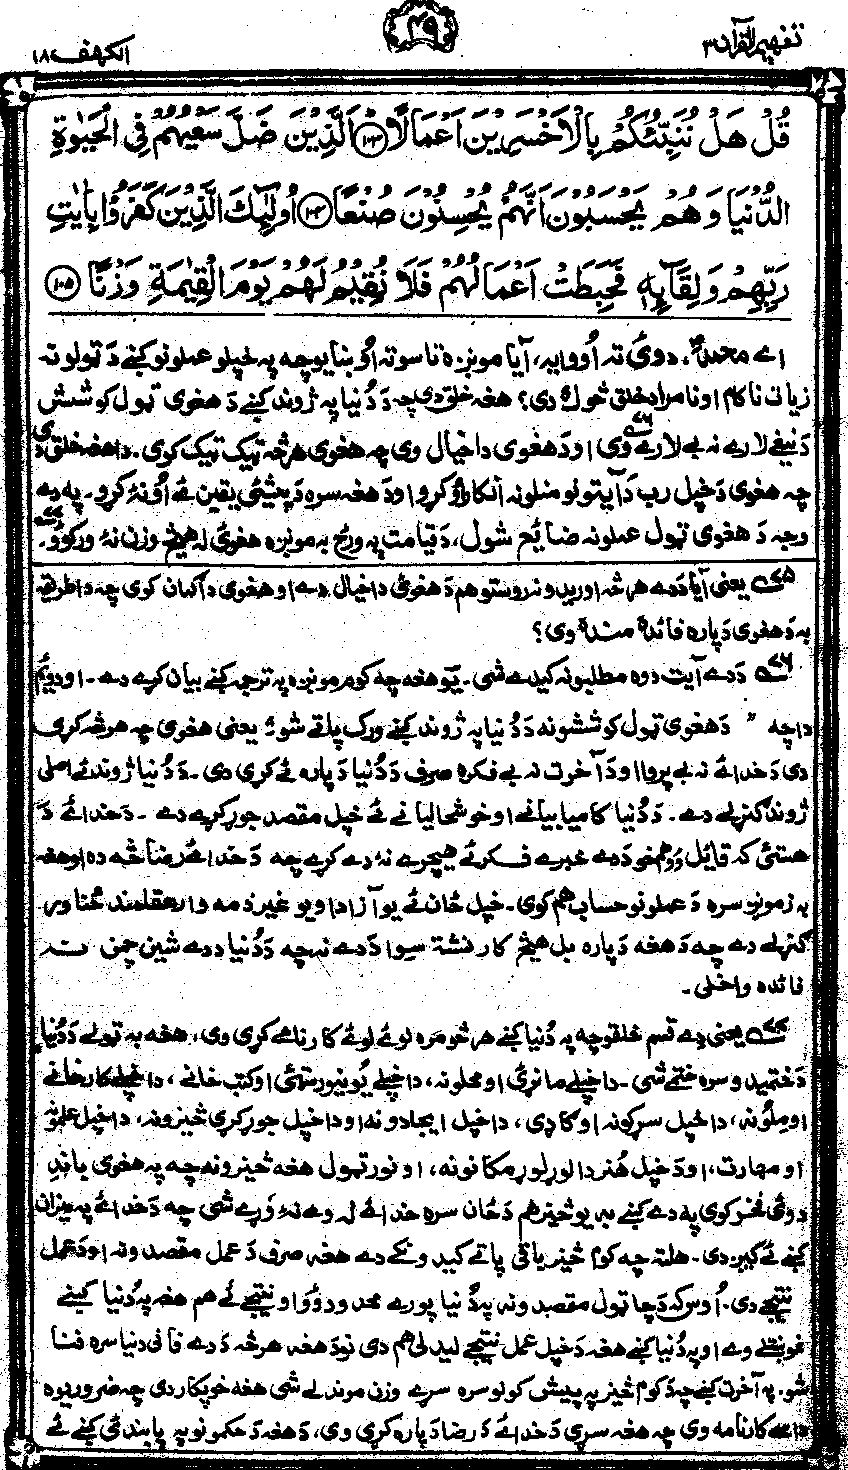 تفهيم القرآن ٣
٤٩
الكهف ١٨
قُلْ هَلْ نُنَبِّئُكُمْ بِالْأَخْسَرِينَ أَعْمَالًا ﴿١٠٣﴾ اَلَّذِينَ ضَلَّ سَعْيُهُمْ فِي الْحَيٰوةِ
الدُّنْيَا وَهُمْ يَحْسَبُونَ أَنَّهُمْ يُحْسِنُونَ صُنْعًا ﴿١٠٤﴾ أُولٰٓئِكَ الَّذِينَ كَفَرُوا بِاٰيٰتِ
رَبِّهِمْ وَلِقَآئِهٖ فَحَبِطَتْ أَعْمَالُهُمْ فَلَا نُقِيمُ لَهُمْ يَوْمَ الْقِيٰمَةِ وَزْنًا ﴿١٠٥﴾
اے محمدؐ، دوئ ته اُووايه، آيا مونږه تاسو ته اُوښايو چه په خپلو عملونو کښے دَ ټولو نه
زيات ناکام او نامراد خلق څوک دى؟ هغه خلق دى چه دَ دُنيا په ژوند کښے دَ هغوى ټول کوشش
دَ نيغے لارے نه بے لارے وى او دَ هغوى دا خيال وى چه هغوى هر څه ټيک ټيک کوى. دا هغه خلق دى
چه هغوى دَ خپل رب دَ آيتونو منلو نه انکار اُوکړو او دَ هغه سره دَ پيشئ يقين ئے اُونۀ کړو. په دے
وجه دَ هغوى ټول عملونه ضائع شول، دَ قيامت په ورځ به مونږه هغوى له هيڅ وزن نۀ ورکوو.
٧٥ يعنى آيا دَ دے هر څه اوريدو نه روستو هم دَ هغوئ دا خيال دے او هغوى دا ګمان کوى چه دا طريقه
به دَ هغوى دَ پاره فائده منده وى؟
٧٦ دَ دے آيت دوه مطلبونه کيدے شى. يو هغه چه کوم مونږه په ترجمه کښے بيان کړے دے. او دويم
دا چه " دَ هغوى ټول کوششونه دَ دُنيا په ژوند کښے ورک پاتے شو" يعنى هغوى چه هر څه کړى
دى دَ خدائے نه بے پروا او دَ آخرت نه بے فکره صرف دَ دُنيا دَ پاره ئے کړى دى. دَ دُنيا ژوند ئے اصلى
ژوند ګنړلے دے. دَ دُنيا کاميابيانے او خوشحاليانے ئے خپل مقصد جوړ کړے دے. دَ خدائے دَ
هستئ که قائل وُو هم خو دَ دے خبرے فکر ئے هيچرے نۀ دے کړے چه دَ خدائے رضا څه ده او هغه
به زمونږ سره دَ عملونو حساب هم کوى. خپل ځان ئے يو آزاد او يو غير ذمه وار عقلمند ځناور
ګنړلے دے چه دَ هغه دَ پاره بل هيڅ کار نشته سوا دَ دے نه چه دَ دُنيا د دے شين چمن نه
فائده واخلى.
٧٧ يعنى دے قسم خلقو چه په دُنيا کښے هر څومره لوئے لوئے کارنامے کړى وى، هغه به ټولے دَ دُنيا
دَ ختميدو سره ختمے شى. دا خپلے ماڼئ او محلونه، دا خپلے يونيورسټئ او کتب خانے، دا خپلے کارخانے
او ملونه، دا خپل سړکونه او ګاډى، دا خپل ايجادونه او دا خپل جوړ کړى څيزونه، دا خپل علمونه
او مهارت، او دَ خپل هُنر دا لوړ لوړ مکانونه، او نور ټول هغه څيزونه چه په هغوى باندِ
دوئ فخر کوى په دے کښے به يو څيز هم دَ ځان سره خدائے له وے نۀ وړے شى چه دَ خدائے په ميزان
کښے ئے کيږدى. هلته چه کوم څيز باقى پاتے کيدونکے دے هغه صرف دَ عمل مقصدونه او دَ عمل
نتيجے دى. اُوس که دَ چا ټول مقصدونه په دُنيا پورے محدود وُو او نتيجے ئے هم هغه په دُنيا کښے
غوښتے وے او په دُنيا کښے هغه دَ خپل عمل نتيجے ليدلى هم دى نو دَ هغه هر څه دَ دے فانى دنيا سره فنا
شو. په آخرت کښے چه دَ کوم څيز په پيش کولو سره سړے وزن موندلے شى هغه خو پکار دى چه ضرور يوه
داسے کارنامه وى چه هغه سړى دَ خدائے دَ رضا دَ پاره کړى وى، دَ هغه دَ حکمونو په پابندئ کښے ئے